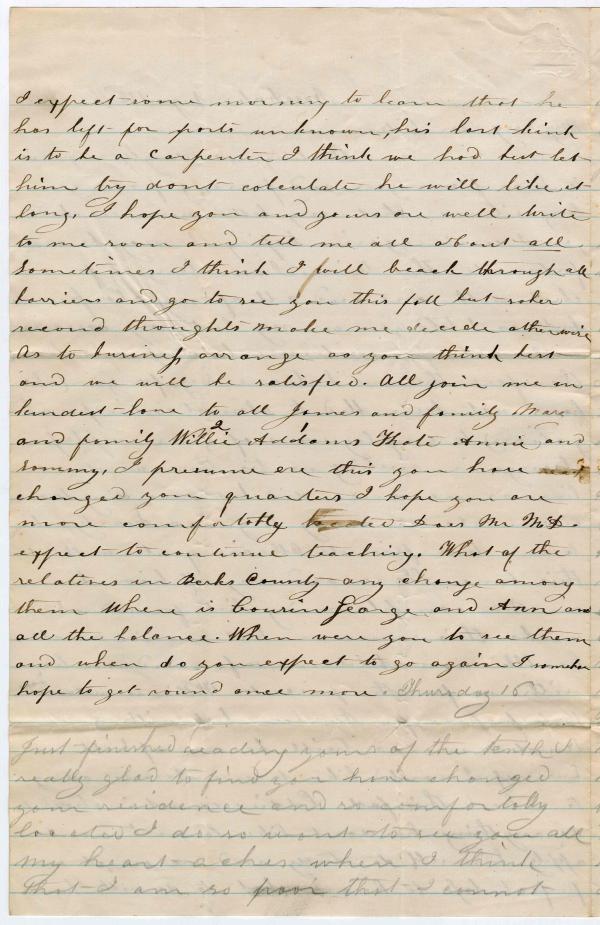 I expect some morning to learn that he
has left for parts unknown, his last kink
is to be a Carpenter I think we had best let
him try dont calculate he will like it
long. I hope you and yours are well. Write
to me soon and tell me all about all
Sometimes I think I will break through all
barriers and go to see you this fall but sober
second thoughts make me decide otherwise
As to business arrange as you think best
and we will be satisfied. All join me in
kindest love to all James and family Mary
and family Willie Addams Kate Annie and
Sammy, I presume ere this you have
changed your quarters I hope you are
more comfortably located Does Mr McD.
expect to continue teaching. What of the
relatives in Berks County any change among
them Where is Cousin George and Ann and
all the balance. When were you to see them
and when do you expect to go again I somehow
hope to get round once more. Thursday 16
Just finished reading yours of the tenth I
really glad to find you have changed
your residence and so comfortably
located I do so want to see you all
my heart aches when I think
that I am so poor that I cannot